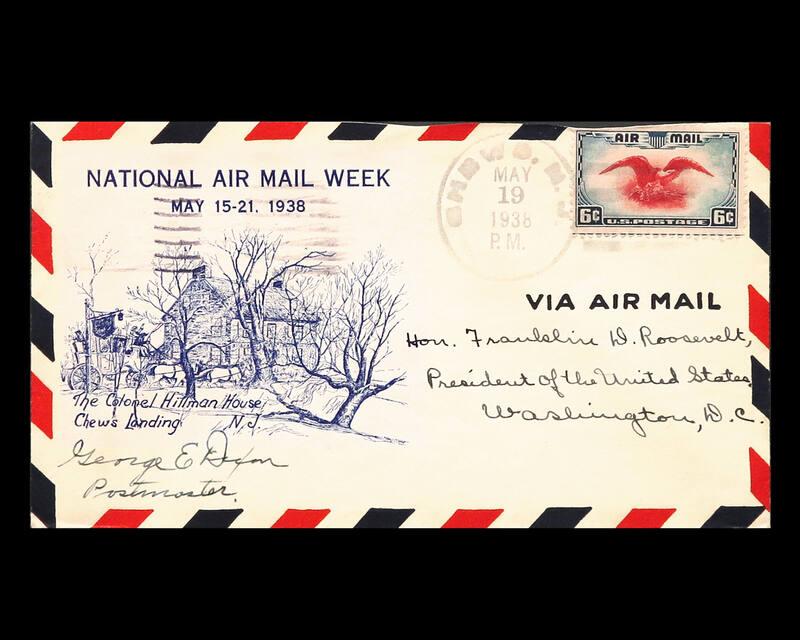 NATIONAL AIR MAIL WEEK
MAY 15-21, 1938
CHEWS, N.J.
MAY
19
1938
P.M.
AIR MAIL
6¢ U.S. POSTAGE 6¢
VIA AIR MAIL
Hon. Franklin D. Roosevelt,
President of the United States,
Washington, D.C.
The Colonel Hillman House
Chews Landing N.J.
George E Dixon
Postmaster.